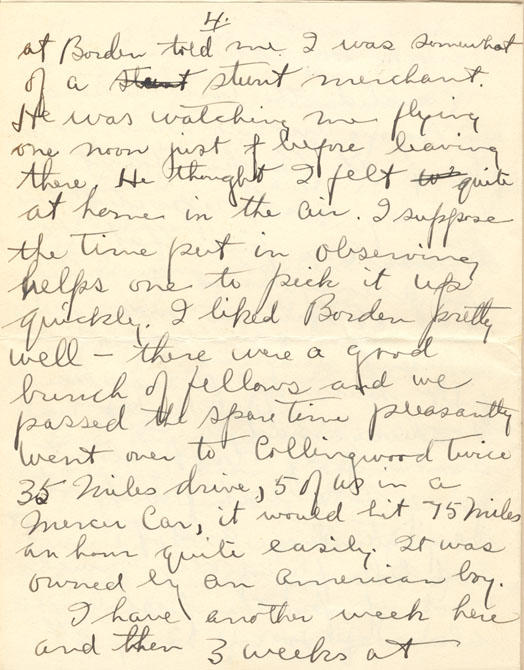 4.
at Borden told me I was somewhat
of a stunt stunt merchant.
He was watching me flying
one noon just before leaving
there. He thought I felt quite
at home in the air. I suppose
the time put in observing
helps one to pick it up
quickly. I liked Borden pretty
well – there were a good
bunch of fellows and we
passed the spare time pleasantly
went over to Collingwood twice
35 miles drive, 5 of us in a
Mercer Car, it would hit 75 miles
an hour quite easily. It was
owned by an American boy.
I have another week here
and then 3 weeks at